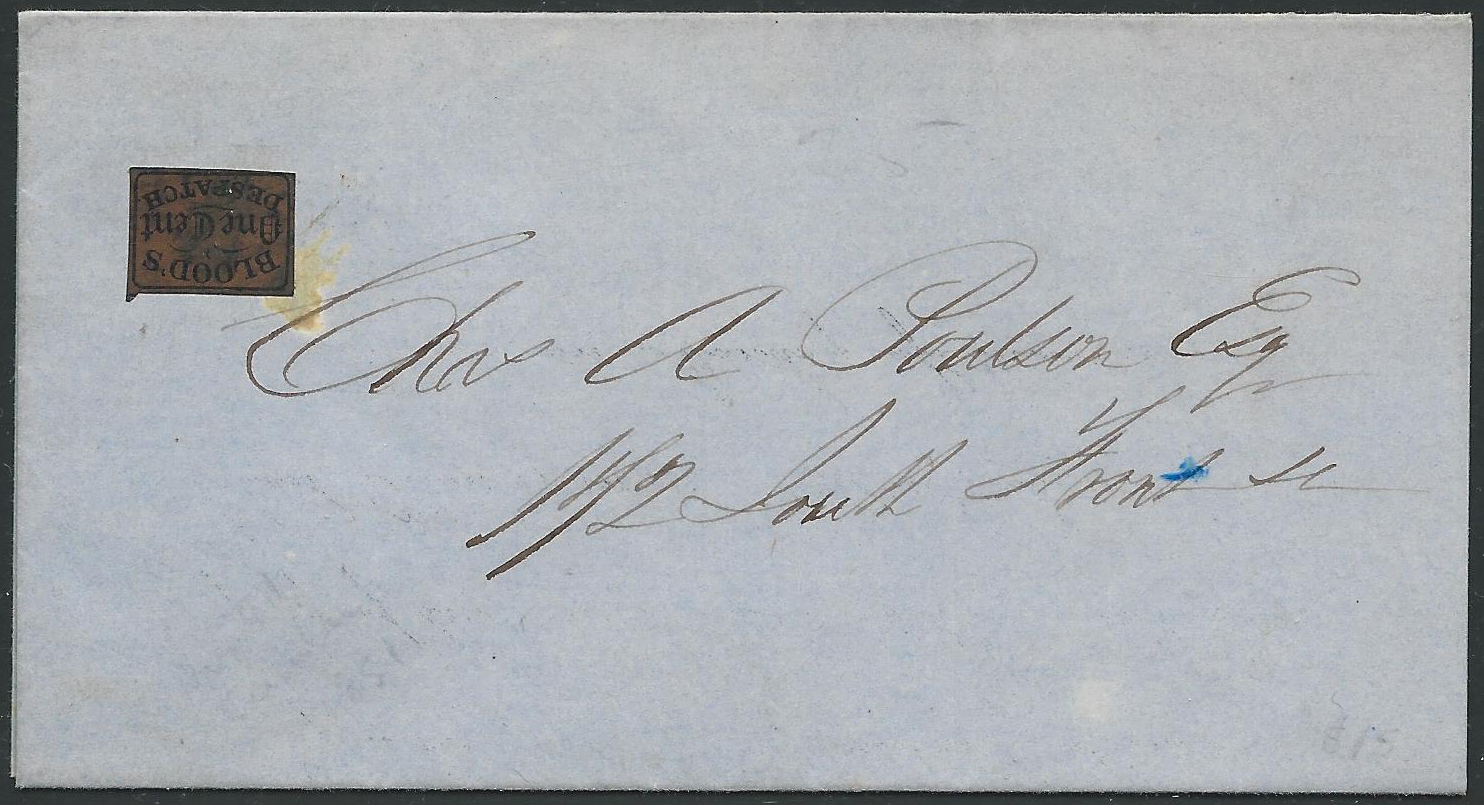 BLOOD'S
One Cent
DESPATCH
Chas A Poulson Esq
112 South Front St